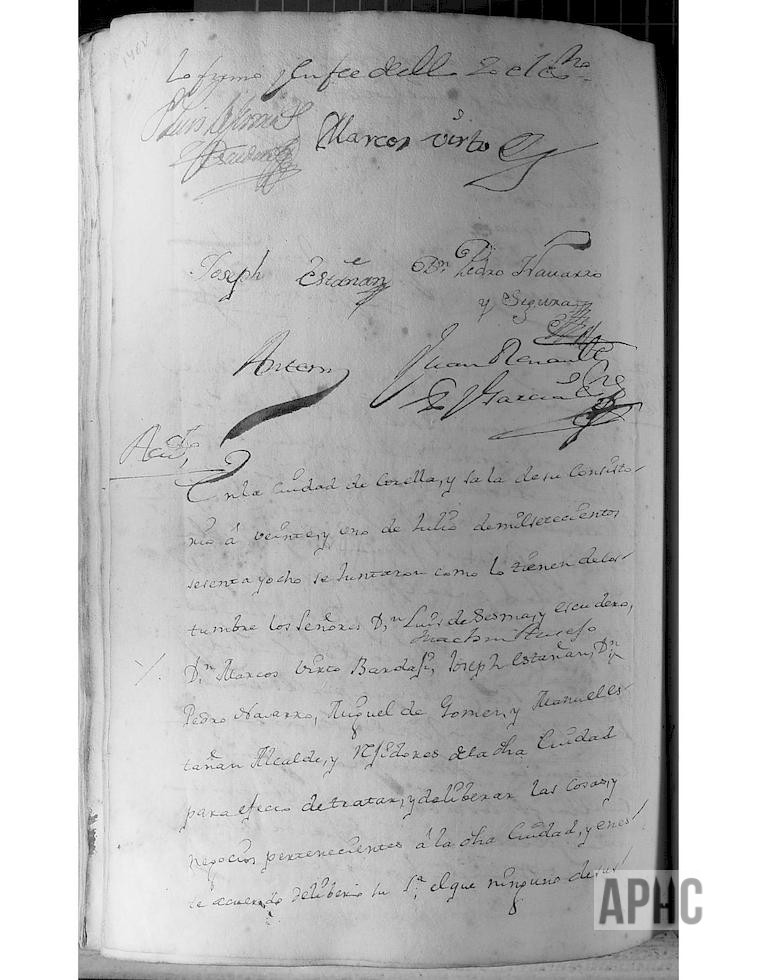 Lo firmo y en fee de ello Yo el esno
Luis de Sesma
y Escudero
Marcos Virto
Joseph Estañan
Dn. Pedro Navarro
y Segura
Antem
Juan Renault
y Garcia
Acdo
En la Ciudad de Corella, y sala de su Consisto-
rio á veinte, y uno de Julio de mil setecientos
sesenta y ocho se Juntaron como lo tienen de cos-
tumbre los señores Dn Luis de Sesma, y escudero,
Joachin
Dn Marcos Virto Bardaji, Joseph Estañan, Dn
Pedro Navarro, Miguel de Gomez, y Manuel Es-
tañan Alcalde, y rejidores de la dha Ciudad
para efecto de tratar, y deliberar las cosas, y
negocios pertenecientes á la dha Ciudad, y en es-
te acuerdo deliberio su Sa. el que ninguno de sus
APHC